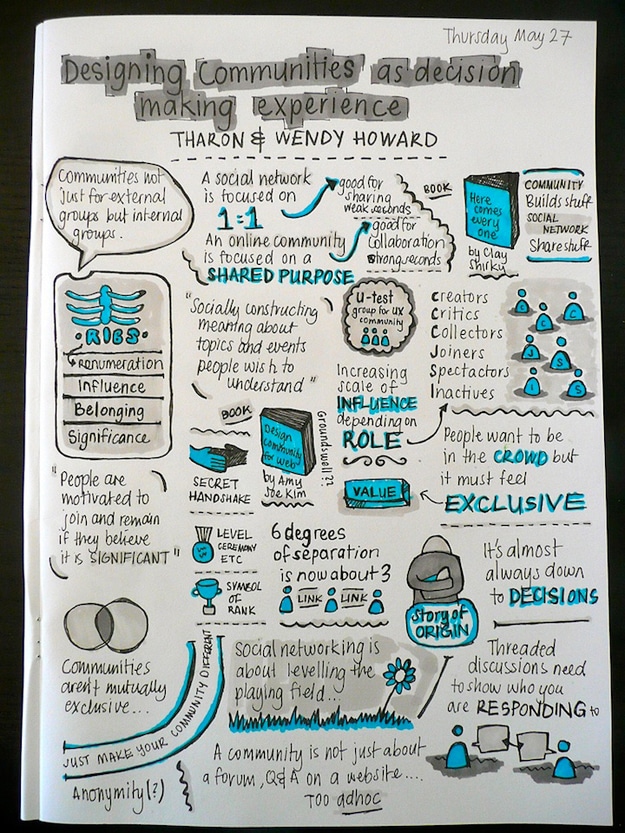 Thursday May 27
Designing Communities as decision
making experience
THARON & WENDY HOWARD
Communities not
just for external
groups but internal
groups.
A social network
is focused on
1:1
good for
sharing
weak seconds
An online community
is focused on a
SHARED PURPOSE
good for
Collaboration
strong seconds
BOOK
Here
comes
every
one
by Clay
Shirky
COMMUNITY
Builds stuff
SOCIAL
NETWORK
Share stuff
RIBS
Renumeration
Influence
Belonging
Significance
"Socially constructing
meaning about
topics and events
people wish to
understand"
u-test
group for ux
community
Increasing
scale of
INFLUENCE
depending on
ROLE
Creators
Critics
Collectors
Joiners
Spectactors
Inactives
C
C
C
J
S
I
S
BOOK
Design
Community
for web
by Amy
Joe Kim
Groundswell??
SECRET
HANDSHAKE
VALUE
People want to be
in the CROWD but
it must feel
EXCLUSIVE
"People are
motivated to
join and remain
if they believe
it is SIGNIFICANT"
LEVEL
CEREMONY
ETC
SYMBOL
OF
RANK
6 degrees
of separation
is now about 3
LINK
LINK
Story of
ORIGIN
It's almost
always down
to DECISIONS
Communities
aren't mutually
exclusive...
JUST MAKE YOUR COMMUNITY DIFFERENT
Anonymity(?)
Social networking is
about levelling the
playing field...
Threaded
discussions need
to show who you
are RESPONDING to
A community is not just about
a forum, Q&A on a website....
TOO adhoc